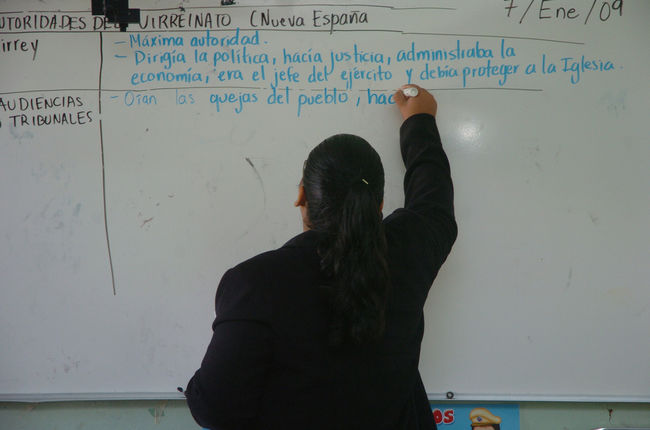 UTORIDADES DEL VIRREINATO (Nueva España
7/Ene/09
irrey
- Máxima autoridad.
- Dirigía la política, hacía justicia, administraba la
economía, era el jefe del ejército y debía proteger a la Iglesia.
AUDIENCIAS
O TRIBUNALES
- Oían las quejas del pueblo, hac
OS